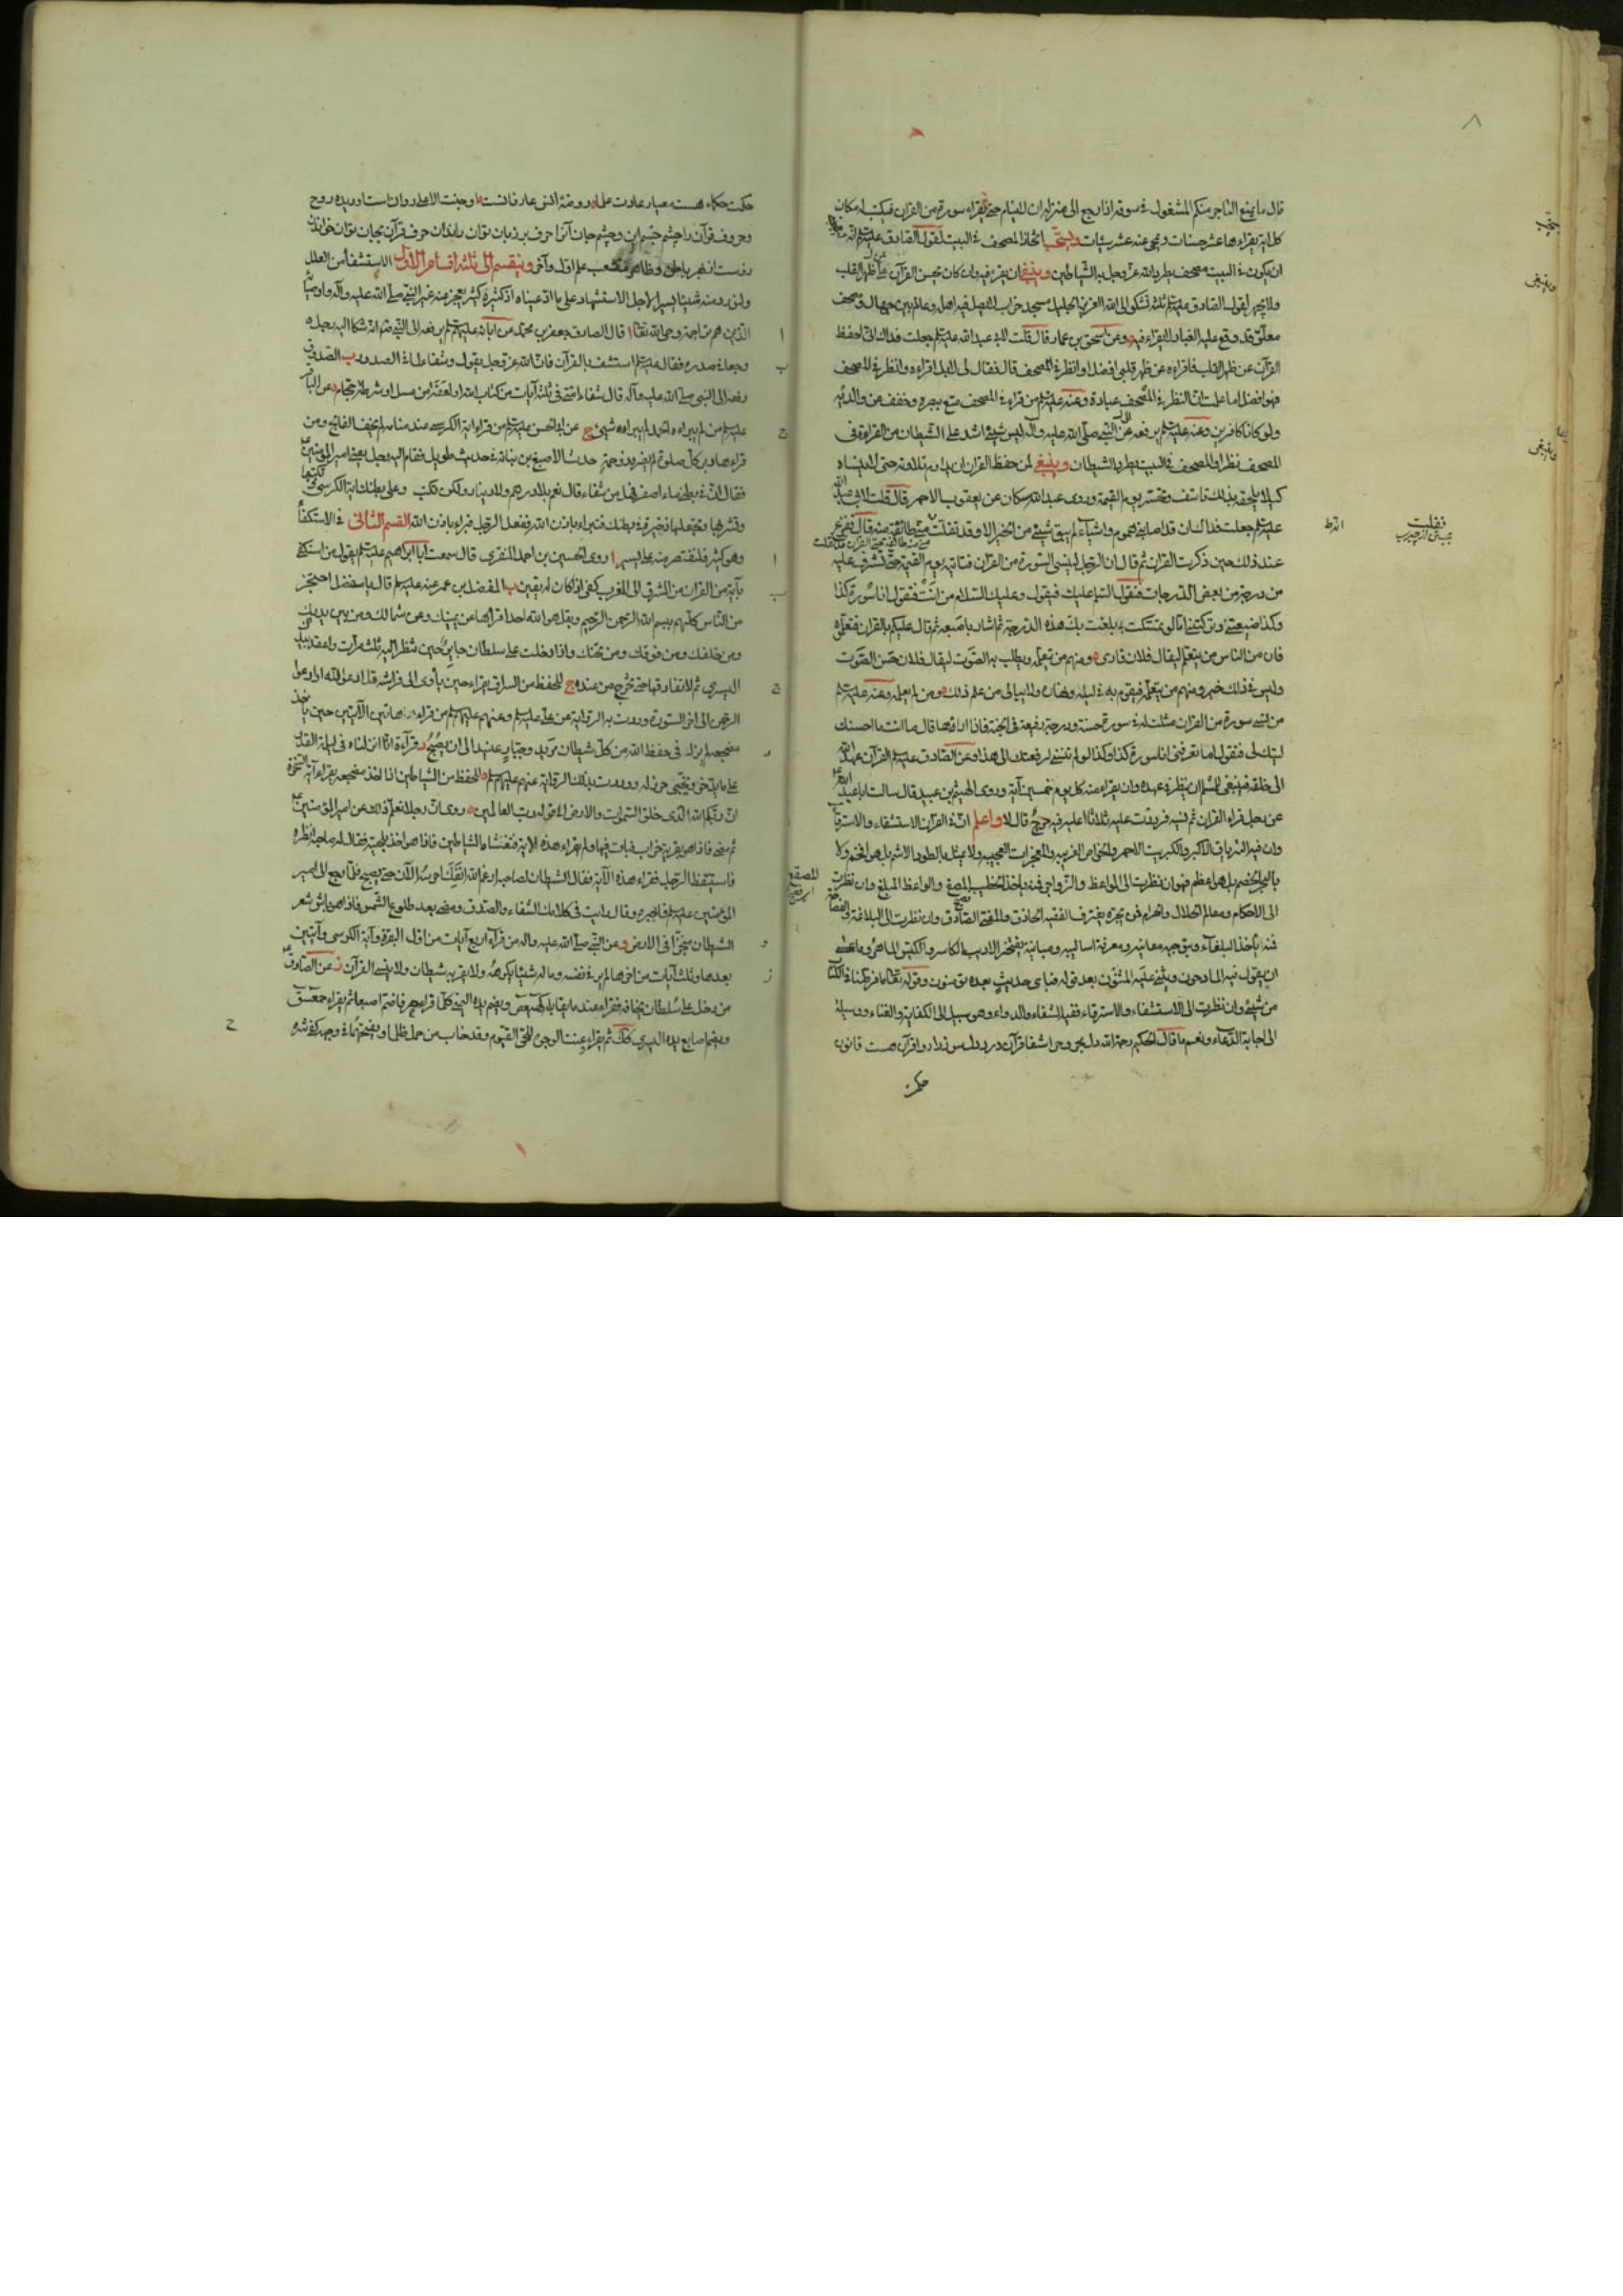 قال ما يمنع التاجر منكم المشغول في سوقه اذا رجع الى منزله ان لا ينام حتى يقراء سورة من القران فيكتب له مكان
كل اية يقراءها عشر حسنات ومحى عنه عشر سيئات ويستحب اتخاذ المصحف في البيت لقول الصادق عليه السلم انه
ان يكون في البيت مصحف يطرد الله عز وجل به الشياطين وينبغي ان يقرء فيه وان كان يحسن القرآن على ظهر القلب
ولا يهجر لقول الصادق عليه السلم ثلثة تشكو الى الله العزيز الجليل مسجد خراب لا يصلى فيه اهله وعالم بين جهال ومصحف
معلق قد وقع عليه الغبار لا يقراء فيه وعن اسحق بن عمار قال قلت لابي عبد الله عليه السلم جعلت فداك اني احفظ
القرآن عن ظهر القلب فاقراءه عن ظهر قلبي افضل او انظر في المصحف قال فقال لي لا بل اقراءه وانظر في المصحف
فهو افضل اما علمت ان النظر في المصحف عبادة وعنه عليه السلم من قراء في المصحف متع ببصره وخفف عن والديه
ولو كانا كافرين وعنه عليه السلم يرفعه الى النبي صلى الله عليه وآله ليس شيئ اشد على الشيطان من القراءة في
المصحف نظرا والمصحف في البيت يطرد الشيطان وينبغي لمن حفظ القران ان يداوم تلاوته حتى لا ينساه
كيلا يلحقه بذلك تاسف وتحسر يوم القيمة وروى عبد الله مسكان عن يعقوب الاحمر قال قلت لابي عبد الله
عليه السلم جعلت فداك ان قد اصابني هموم واشياء لم يبق شيئ من الخير الا وقد تفلت مني طائفة منه قال ففزع
عند ذلك حين ذكرت القران ثم قال ان الرجل لينسى السورة من القرآن فتاتيه يوم القيمة حتى تشرف عليه
من درجة من بعض الدرجات فتقول السلم عليك فيقول وعليك السلام من انت فتقول انا سورة كذا
وكذا ضيعتني وتركتني اما لو تمسكت بي بلغت بك هذه الدرجة ثم اشار باصبعه ثم قال عليكم بالقران فتعلموه
فان من الناس من يتعلم ليقال فلان قارى ومنهم من تعلمه ويطلب به الصوت ليقال فلان حسن الصوت
وليس في ذلك خير ومنهم من يتعلمه فيقوم به في ليله ونهاره ولا يبالي من علم ذلك ومن لم يعلمه وعنه عليه السلم
من نسي سورة من القران مثلت له في سورة حسنة ودرجة رفيعة في الجنة فاذا رآها قال ما انت ما احسنك
ليتك لي فتقول اما تعرفني انا سورة كذا وكذا لو لم تنسني لرفعتك الى هذا وعن الصادق عليه السلم القرآن عهد الله
الى خلقه فينبغي للمسلم ان ينظر في عهده وان يقراء منه كل يوم خمسين آية وروى الهيثم بن عبيد قال سالت ابا عبد الله
عن رجل قراء القران ثم نسيه فرددت عليه ثلاثا اعليه فيه حرج قال لا واعلم ان في القرآن الاستشفاء والاسترقاء
وان فيه الترياق الاكبر والكبريت الاحمر والخواص الغريبه والمعجزات العجيبه ولا يمثل بالطود الاشم بل هو افخم ولا
بالبحر الخضم بل هو اعظم فهو ان نظرت الى المواعظ والزواجر فمنه ياخذ الخطيب المصقع والواعظ المبلغ وان نظرت
الى الاحكام ومعالم الحلال والحرام فمن بحره يغترف الفقيه الحاذق والمفتي الصادق وان نظرت الى البلاغة والفصاحة
فمنه ياخذ البلغاء وبتوجيه معانيه ومعرفة اساليبه ومبانيه يفتخر الاديب الكاسر والكيس الماهر وما عسى
ان يقول فيه المادحون ويثني عليه المثنون بعد قوله فباي حديث بعده يؤمنون وقوله تعالى ما فرطنا في الكتاب
من شيئ وان نظرت الى الاستشفاء والاسترقاء ففيه الشفاء والدواء وهو سبيل الى الكفاية والغناء ووسيلة
الى اجابة الدعاء ونعم ما قال الحكيم رحمة الله
حكمت
ينبغي
وينبغي
فقلت
المصقع
حكمت حكماء هست معيار عادت علما روضه انس عارفانست وجنت الاعلى
وحروف قرآن را بچشم جسم ببين وبچشم جان آنرا حرف بر زبان توان راندن حرف قرآن بجان توان خواندن
وينقسم الى ثلثة اقسام الاول الاستشفاء من العلل
ولنورد منه شيئا يسيرا لاجل الاستشهاد على ما ادعيناه اذ كثيره كثير يعجز عنه غير النبي صلى الله عليه وآله واوصيائه
الذين هم تراجمة وحى الله تعالى ا قال الصادق جعفر بن محمد عن ابائه عليهم السلم يرفعه الى النبي صم انه شكا اليه رجل
وجعا في صدره فقال عليه السلم استشف بالقرآن فان الله عز وجل يقول وشفاء لما في الصدور ب الصدوق
رفعه الى النبي صلى الله عليه وآله قال شفاء امتي في ثلث آيات من كتاب الله او لعقة من عسل او شرطة حجام وعن الباقر
عليه السلم من لم يبراءه الحمد لم يبراءه شيئ ج عن ابي الحسن عليه السلم من قراء اية الكرسي عند منامه لم يخف الفالج ومن
قراءها دبر كل صلوة لم يضره ذو حمة حدث الاصبغ بن نباتة في حديث طويل فقام اليه رجل يعني امير المؤمنين
فقال ان في بطني ماء اصفر فهل من شفاء قال نعم بلا درهم ولا دينار ولكن تكتب على بطنك اية الكرسي وتكتبها
وتشربها وتجعلها ذخيرة في بطنك فتبراء باذن الله ففعل الرجل فبراء باذن الله القسم الثاني في الاستكفاء
وهو كثير فلنقتصر منه على اليسير ا روى الحسين بن احمد المنقري قال سمعت ابا ابراهيم عليه السلم يقول من استكفى
بآية من القران من المشرق الى المغرب كفى اذا كان له يقين ب المفضل بن عمر عنه عليه السلم قال يا مفضل احتجز
من الناس كلهم ببسم الله الرحمن الرحيم وبقل هو الله احد اقراءها عن يمينك وعن شمالك ومن بين يديك
ومن خلفك ومن فوقك ومن تحتك واذا دخلت على سلطان جاير حين تنظر اليه ثلث مرات واعقد بيدك
اليسرى ثم لا تفارقها حتى تخرج من عنده ج للحفظ من السارق يقراء حين يأوى الى فراشه قل ادعوا الله او ادعوا
الرحمن الى آخر السورة وردت به الرواية عن علي عليه السلم وعنهم عليهم السلم من قراء هاتين الآيتين حين ياخذ
مضجعه لم يزل في حفظ الله من كل شيطان مريد وجبار عنيد الى ان يصبح د قراءة انا انزلناه في ليلة القدر
على ما يدخر ويخبى حرز له ووردت بذلك الرواية عنهم عليهم السلم ه للحفظ من الشياطين اذا اخذ مضجعه يقراء آية السخرة
ان ربكم الله الذى خلق السموات والارض الى قوله رب العالمين روى ان رجلا تعلم ذلك عن امير المؤمنين
ثم مضى فاذا هو بقرية خراب فبات فيها ولم يقراء هذه الاية فتغشاه الشياطين فاذا هو اخذ بلحيته فقال له صاحبه انظره
فاستيقظ الرجل فقراء هذه الآية فقال الشيطان لصاحبه ارغم الله انفك احرسه الآن حتى يصبح فلما رجع الى امير
المؤمنين عليه السلم فاخبره وقال رايت في كلامك الشفاء والصدق ومضى بعد طلوع الشمس فاذا هو باثر شعر
الشيطان منجرا في الارض و عن النبي صلى الله عليه واله من قراء اربع آيات من اول البقرة وآية الكرسي وآيتين
بعدها وثلث آيات من اخرها لم ير في نفسه وماله شيئا يكرهه ولا يقربه شيطان ولا ينسى القرآن ز عن الصادق
من دخل على سلطان يخافه فقراء عند ما يقابله كهيعص ويضم يده اليمنى كلما قراء حرفا ضم اصبعا ثم يقراء حمعسق
ويضم اصابع يده اليسرى كذلك ثم يقراء وعنت الوجوه للحي القيوم وقد خاب من حمل ظلما ويفتحهما في وجهه كفى شره